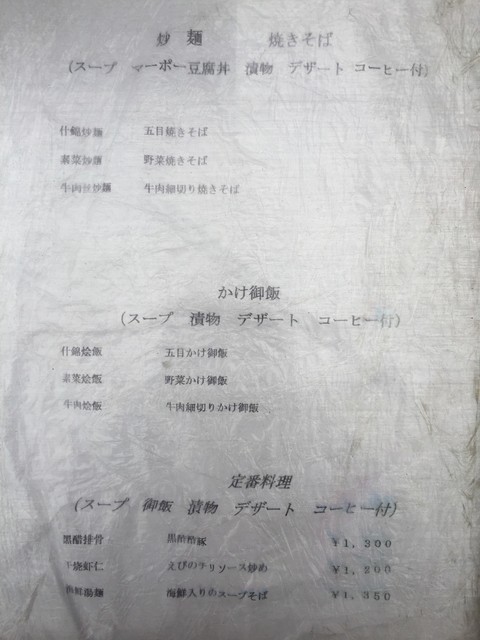 炒 麺 焼きそば
(スープ マーポー豆腐丼 漬物 デザート コーヒー付)
什錦炒麺 五目焼きそば
素菜炒麺 野菜焼きそば
牛肉絲炒麺 牛肉細切り焼きそば
かけ御飯
(スープ 漬物 デザート コーヒー付)
什錦烩飯 五目かけ御飯
素菜烩飯 野菜かけ御飯
牛肉烩飯 牛肉細切りかけ御飯
定番料理
(スープ 御飯 漬物 デザート コーヒー付)
黒醋排骨 黒酢酢豚 ¥1,300
干焼虾仁 えびのチリソース炒め ¥1,200
海鮮湯麺 海鮮入りのスープそば ¥1,350